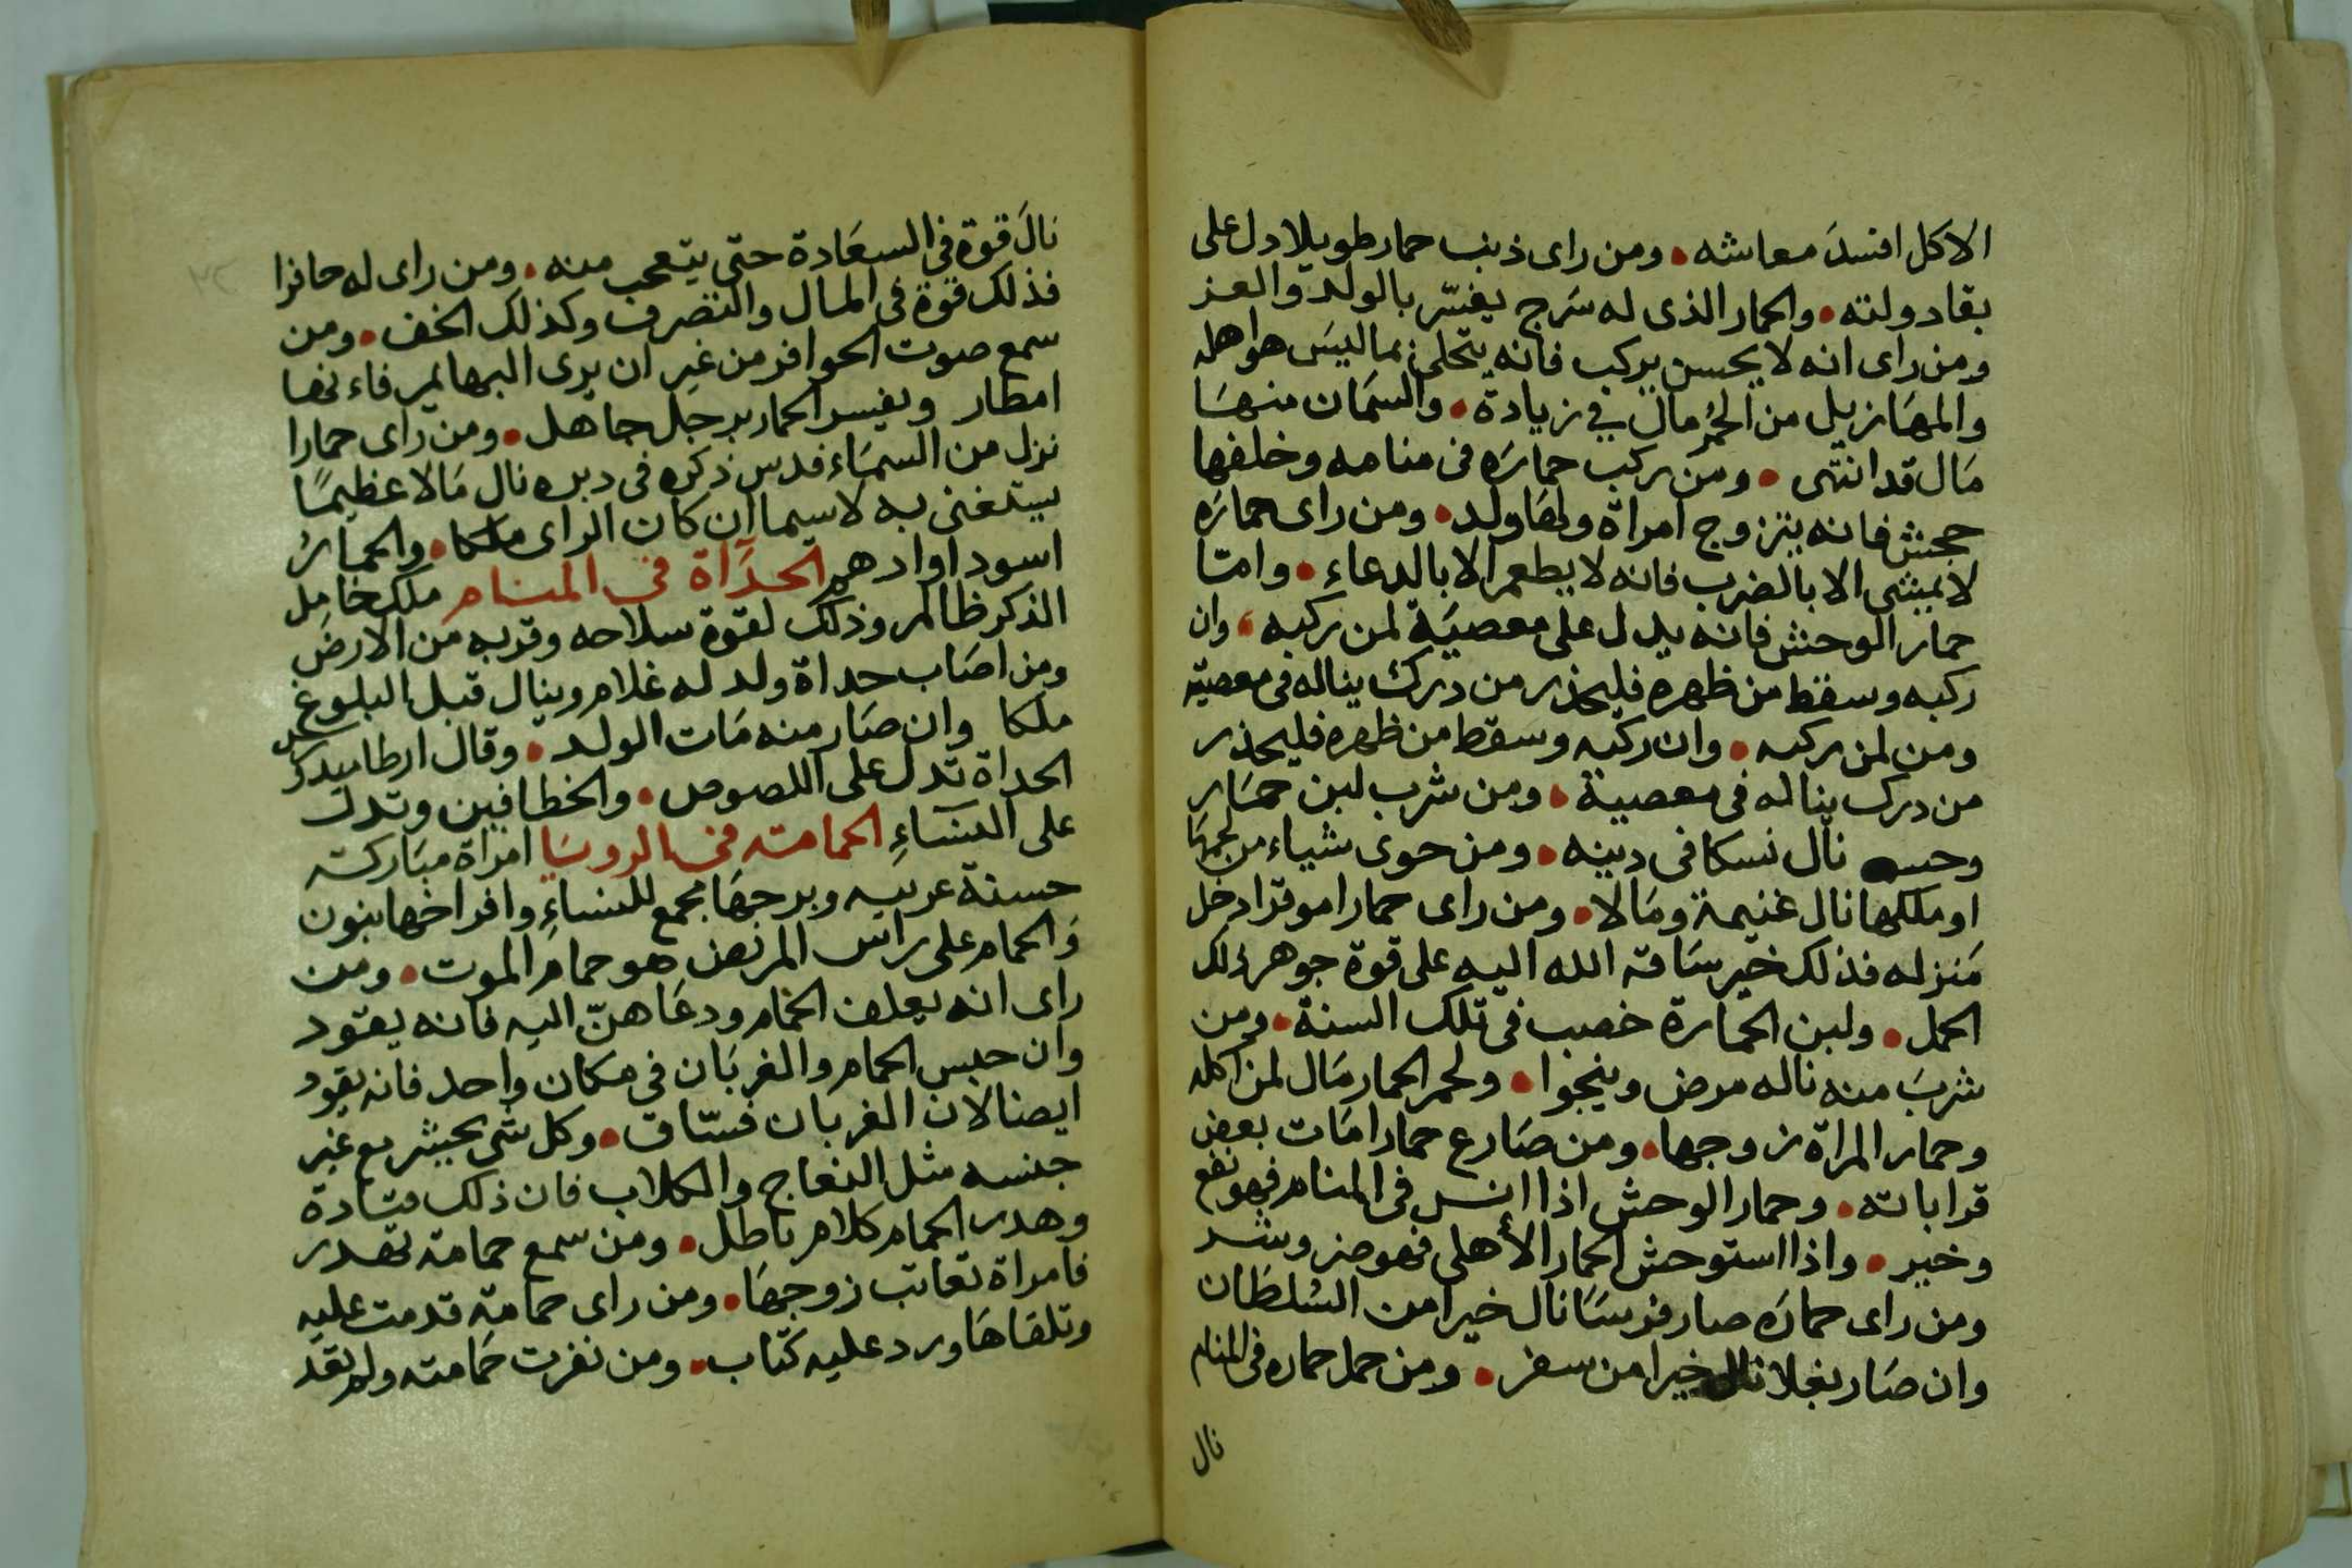 الاكل افسدَ معاشه • ومن راى ذنب حمار طويلا دل على
بقاد ولته • والحمار الذى له سَرج يفسّر بالولد والعز
ومن راى انه لا يحسن يركب فانه يتحلى بما ليسَ هو اهله
والمهَازيل من الحُمُر مال في زيادة • والسمَان منهسَا
مَال قد انتهى • ومن ركب حمارَه فى منامه وخلفها
جحش فانه يتزوج امراة ولهَا ولد • ومن راى حمارَه
لا يمشى الا بالضرب فانه لا يطعم الا بالدعاء • وامّا
حمار الوحش فانه يدل على معصيَة لمن ركبه • وان
ركبه وسقط من ظهره فليحذر من درك يناله فى معصيته
ومن لمن ركبه • وان ركبه وسقط من ظهره فليحذر
من درك يناله فى معصية • ومن شرب لبن حمَار
وحسه نال نسكا فى دينه • ومن حوى شياء من لحمهَا
او ملكها نال غنيمة ومَالا • ومن راى حمارا موقرا دخل
مَنزله فذلك خير سَاقه الله اليه على قوة جوهر ذلك
الحمل • ولبن الحمارة خصب فى تلك السنة • ومن
شربَ منه ناله مرض وينجوا • ولحم الحمار مَال لمن اكله
وحمار المراة زوجها • ومن صَارع حمارا مَات بعض
قراباته • وحمار الوحش اذا انس فى المنام فهو نفع
وخير • واذا استوحش الحمار الأهلى فهو ضر وشد
ومن راى حمارَه صار فرسَا نال خيرا من السُلطَان
وان صَار بغلا نال خيرا من سفر • ومن حمل حماره فى المنام
نال
نالَ قوة فى السعَادة حتى يتعجب منه • ومن راى له حافرا
فذلك قوة فى المال والتصرف وكذلك الخف • ومن
سمع صوت الحوافر من غير ان يرى البهايم فاء نها
امطار ويفسر الحمار برجل جاهل • ومن راى حمارا
نزل من السمَاء فدس ذكره فى دبره نال مَالا عظيمًا
يستغنى به لاسيما ان كان الراى ملكا • والحمارُ
اسود او ادهم الحدَأة فى المنام ملك خامِل
الذكر ظالم وذلك لقوة سلاحه وقربه من الارض
ومن اصَاب حداة ولد له غلام وينال قبل البلوغ
ملكا وان صَار منه مَات الولد • وقال ارطاميدورس
الحداة تدل على اللصوص • والخطافين وتدل
على النسَاءِ الحمامته فى الروسَا امراة مبَاركته
حسنة عربيه وبرجهَا مجمع للنساءِ وافراخها بنون
وَالحمام على راس المريض هو حمام الموت • ومن
راى انه يعلف الحمام ودعَاهنّ اليه فانه يقود
وان حبس الحمام والغربَان فى مكان واحد فانه يقود
ايضا لان الغربان فسّاق • وكل شى يحيش مع غير
جنسه مثل النعاج والكلاب فان ذلك متادة
وهدر الحمام كلام باطل • ومن سمع حمامته تهدر
فامراة تعاتب زوجهَا • ومن راى حمامة قدمت عليه
وتلقاهَا ورد عليه كتاب • ومن نفرت حمَامته ولم تعد